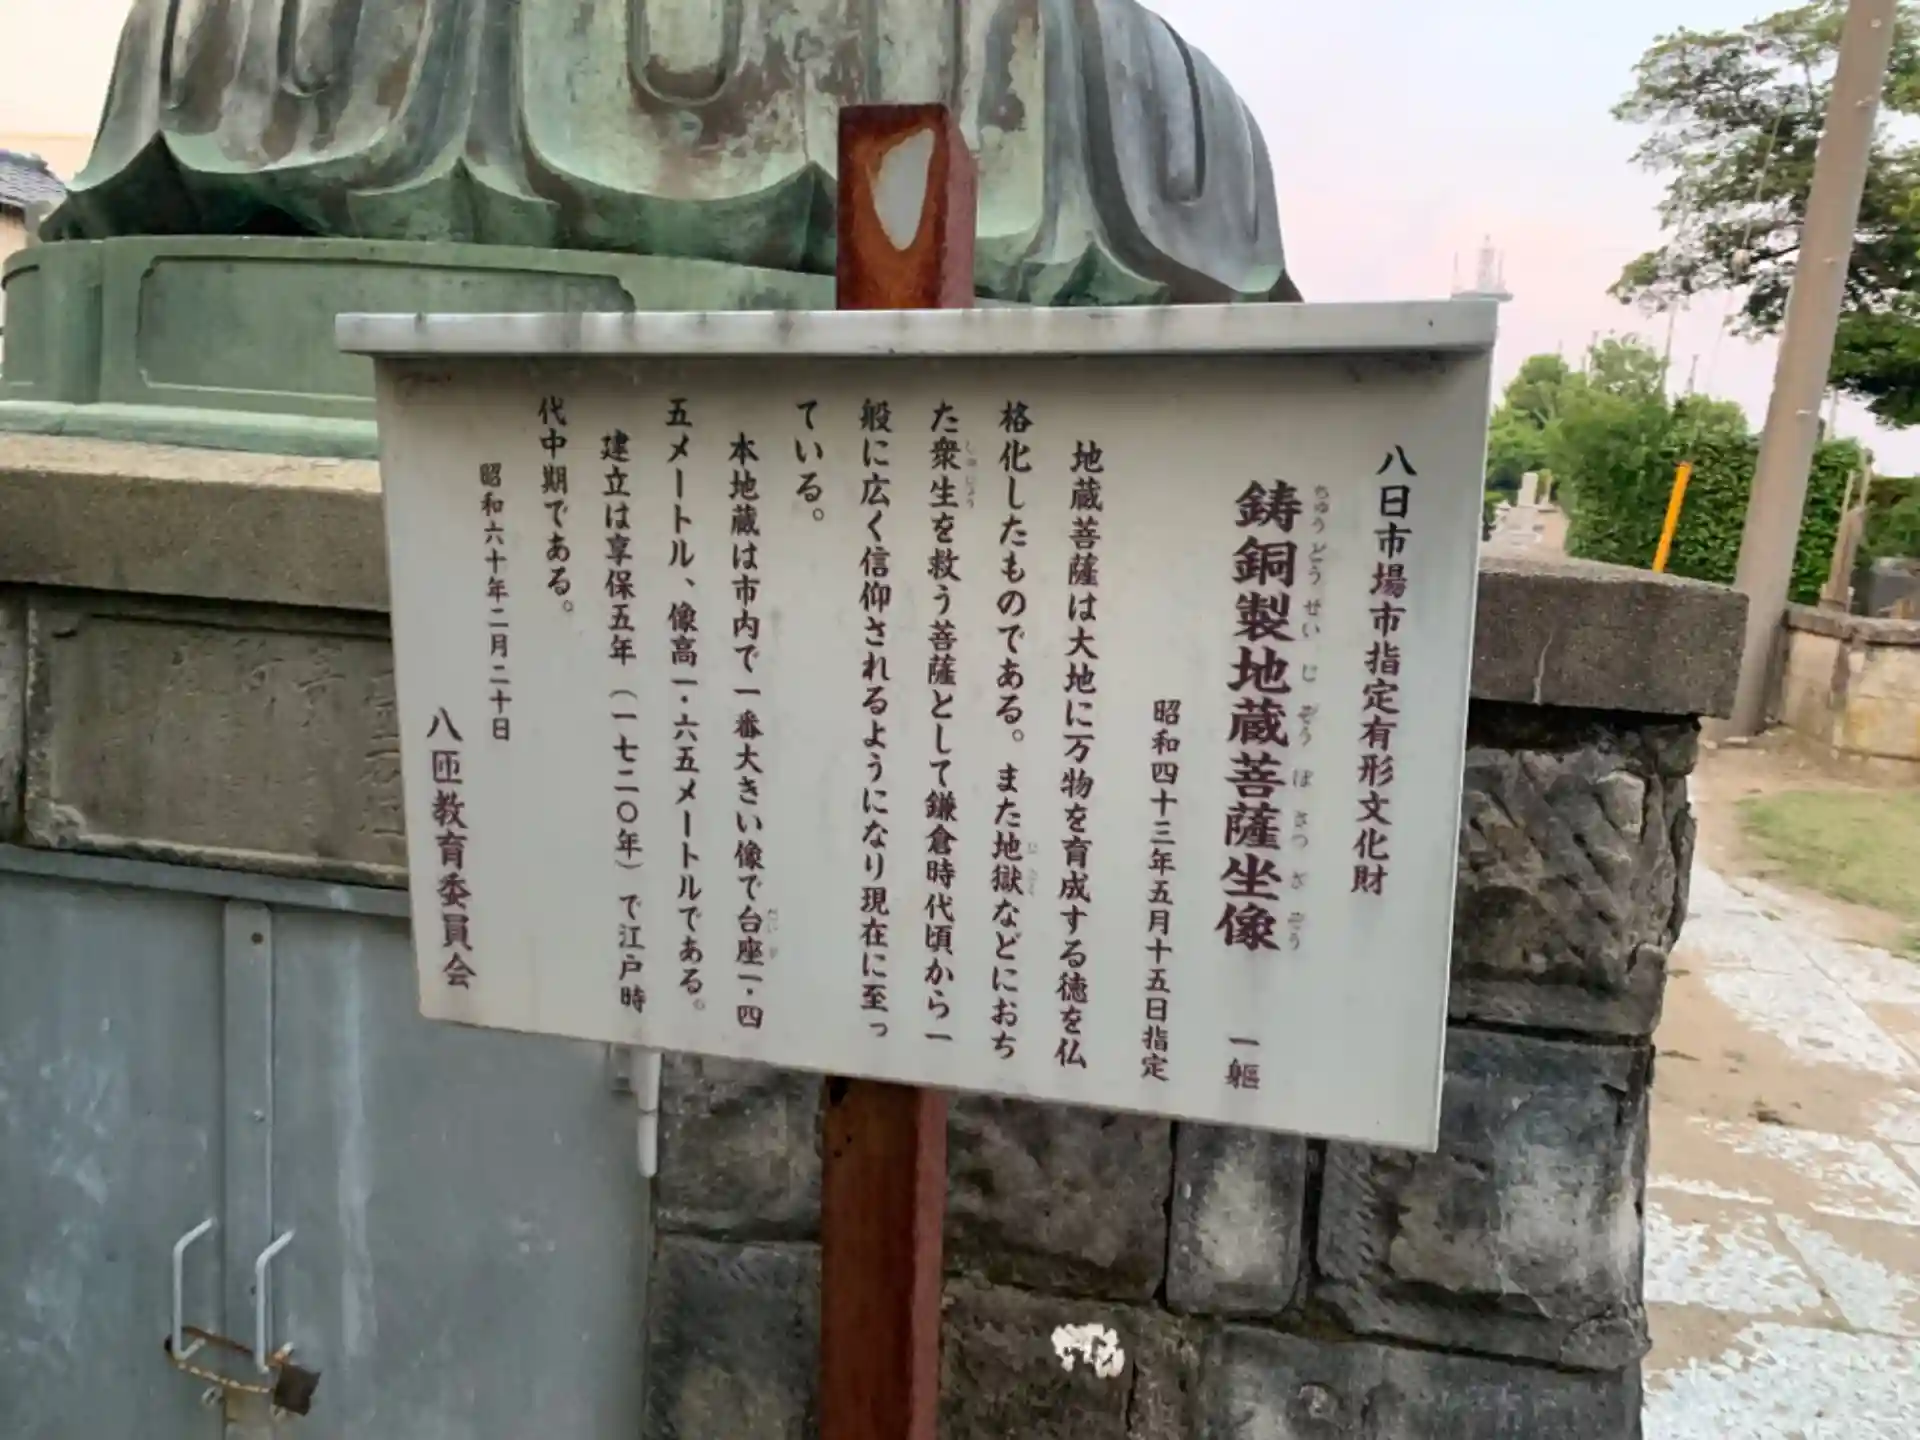 八日市場市指定有形文化財
鋳銅製地蔵菩薩坐像 一軀
ちゅうどうせいじぞうぼさつざぞう
昭和四十三年五月十五日指定
地蔵菩薩は大地に万物を育成する徳を仏
格化したものである。また地獄などにおち
た衆生を救う菩薩として鎌倉時代頃から一
しゅじょう
般に広く信仰されるようになり現在に至っ
ている。
本地蔵は市内で一番大きい像で台座一・四
だいざ
五メートル、像高一・六五メートルである。
建立は享保五年（一七二〇年）で江戸時
代中期である。
昭和六十年二月二十日
八匝教育委員会